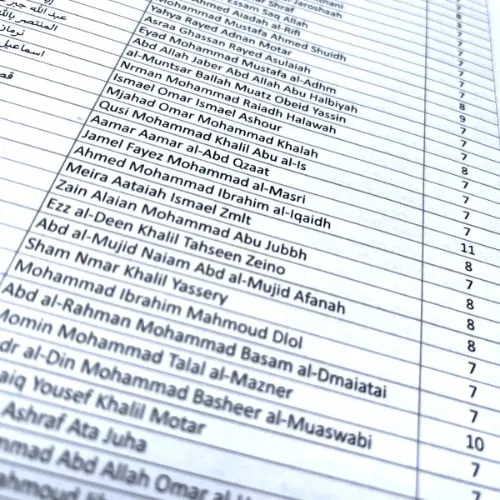 Essam Saq Allah
Ahmed Aiadah al-Rifi
Mohammad Mustafa Ahmed Shuidh
Yahya Rayed Adnan Motar
Asraa Ghassan Rayed Asulaiah
Eyad Mohammad Mustafa al-Adhm
Abd Allah Jaber Abd Allah Abu Halbiyah
al-Muntsar Ballah Muatz Obeid Yassin
Nrman Mohammad Raiadh Halawah
Ismael Omar Ismael Ashour
Mjahad Omar Mohammad Khalah
Qusi Mohammad Khalil Abu al-Is
Aamar Aamar al-Abd Qzaat
Jamel Fayez Mohammad al-Masri
Ahmed Mohammad Ibrahim al-Iqaidh
Meira Aataiah Ismael Zmlt
Zain Alaian Mohammad Abu Jubbh
Ezz al-Deen Khalil Tahseen Zeino
Abd al-Mujid Naiam Abd al-Mujid Afanah
Sham Nmar Khalil Yassery
Mohammad Ibrahim Mahmoud Dlol
Abd al-Rahman Mohammad Basam al-Dmaiatai
Momin Mohammad Talal al-Mazner
al-Din Mohammad Basheer al-Muaswabi
Yousef Khalil Motar
Ashraf Ata Juha
Abd Allah Omar
7
7
7
7
7
7
8
9
7
7
7
8
7
7
7
11
8
7
8
8
8
7
7
10
7
7